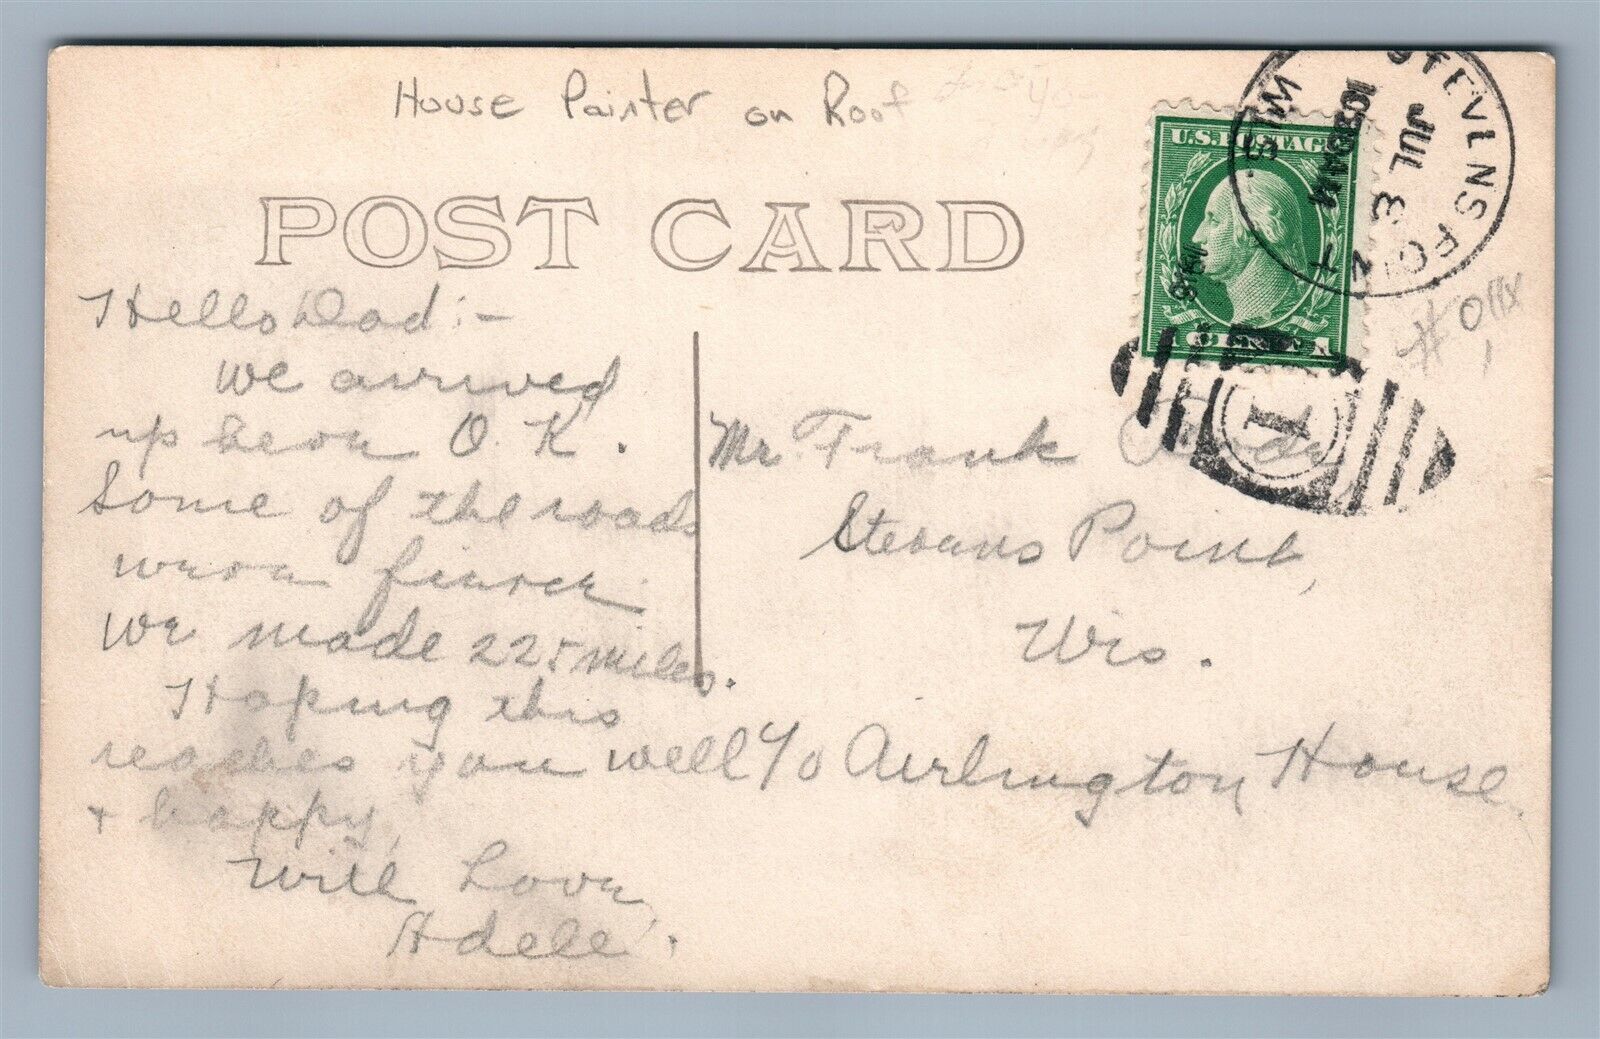 House Painter on Roof
POST CARD
U.S. POSTAGE
1 CENT 1
STEVENS POINT
WIS.
JUL 3
1030 AM
1916
1
#
Hello Dad :-
we arrived
up here O.K.
Some of the roads
were fierce
We made 225 miles.
Hoping this
reaches you well
+ happy,
With Love,
Adele.
Mr. Frank
Stevens Point,
Wis.
c/o Airlington House